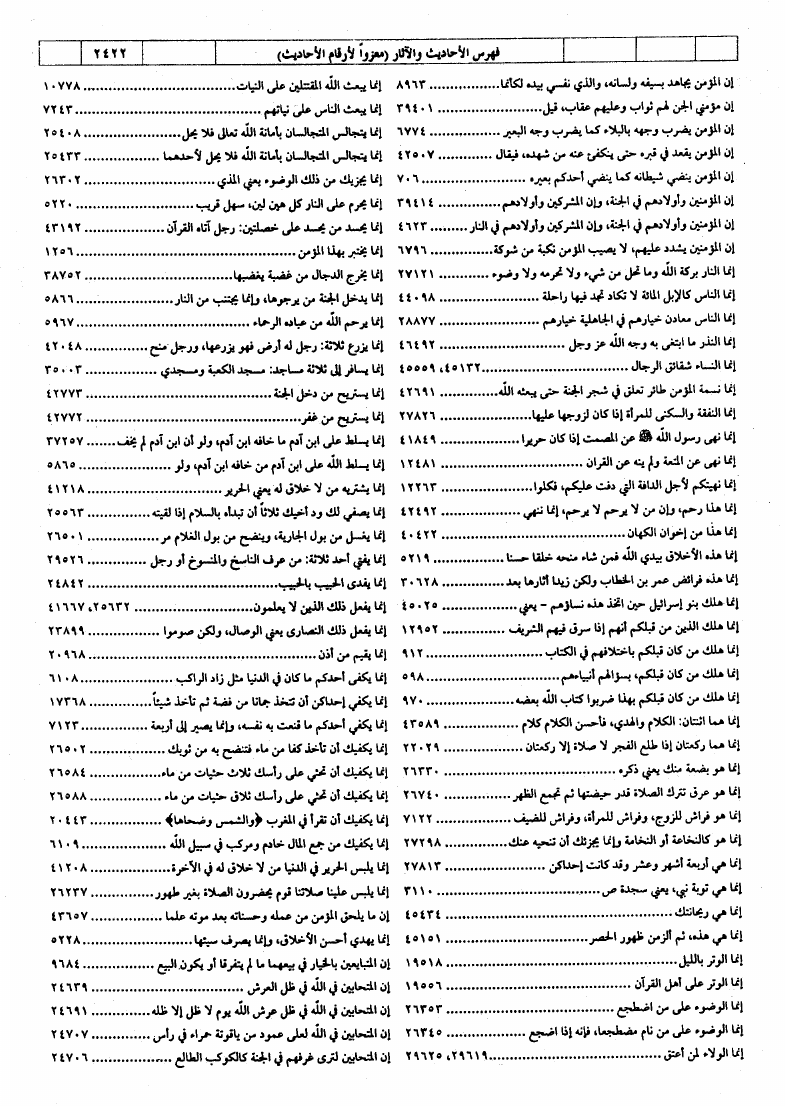 فهرس الأحاديث والآثار (معزواً لأرقام الأحاديث) ٢٤٢٢
إن المؤمن يجاهد بسيفه ولسانه، والذي نفسي بيده لكأنما ٨٩٦٣
إن مؤمني الجن لهم ثواب وعليهم عقاب، قيل ٣٩٤٠١
إن المؤمن يضرب وجهه بالبلاء كما يضرب وجه البعير ٦٧٧٤
إن المؤمن يقعد في قبره حتى ينكفئ عنه من شهده، فيقال ٤٢٥٠٧
إن المؤمن ينضي شيطانه كما ينضي أحدكم بعيره ٧٠٦
إن المؤمنين وأولادهم في الجنة، وإن المشركين وأولادهم ٣٩٤١٤
إن المؤمنين وأولادهم في الجنة، وإن المشركين وأولادهم في النار ٤٦٢٣
إن المؤمنين يشدد عليهم، لا يصيب المؤمن نكبة من شوكة ٦٧٩٦
إنما النار بركة الله وما تحل من شيء ولا تحرمه ولا وضوء ٢٧١٢١
إنما الناس كالإبل المائة لا تكاد تجد فيها راحلة ٤٤٠٩٨
إنما الناس معادن خيارهم في الجاهلية خيارهم ٢٨٨٧٧
إنما النذر ما ابتغي به وجه الله عز وجل ٤٦٤٩٢
إنما النساء شقائق الرجال ٤٥١٣٢، ٤٥٥٥٩
إنما نسمة المؤمن طائر تعلق في شجر الجنة حتى يبعثه الله ٤٢٦٩١
إنما النفقة والسكنى للمرأة إذا كان لزوجها عليها ٢٧٨٢٦
إنما نهى رسول الله ﷺ عن المصمت إذا كان حريرا ٤١٨٤٩
إنما نهى عن المتعة ولم ينه عن القران ١٢٤٨١
إنما نهيتكم لأجل الدافة التي دفت عليكم، فكلوا ١٢٢٦٣
إنما هذا رحم، وإن من لا يرحم لا يرحم، إنما ننهى ٤٢٤٩٢
إنما هذا من إخوان الكهان ٤٠٤٢٢
إنما هذه الأخلاق بيدي الله فمن شاء منحه خلقا حسنا ٥٢١٩
إنما هذه فرائض عمر بن الخطاب ولكن زيدا أثارها بعد ٣٠٦٢٨
إنما هلك بنو إسرائيل حين اتخذ هذه نساؤهم - يعني ٤٥٠٢٥
إنما هلك الذين من قبلكم أنهم إذا سرق فيهم الشريف ١٢٩٥٢
إنما هلك من كان قبلكم باختلافهم في الكتاب ٩١٢
إنما هلك من كان قبلكم، بسؤالهم أنبياءهم ٥٩٨
إنما هلك من كان قبلكم بهذا ضربوا كتاب الله بعضه ٩٧٠
إنما هما اثنتان: الكلام والهدي، فأحسن الكلام كلام ٤٣٥٨٩
إنما هما ركعتان إذا طلع الفجر لا صلاة إلا ركعتان ٢٢٠٢٩
إنما هو بضعة منك يعني ذكره ٢٦٣٣٠
إنما هو عرق تترك الصلاة قدر حيضتها ثم تجمع الظهر ٢٦٧٤٠
إنما هو فراش للزوج، وفراش للمرأة، وفراش للضيف ٧١٢٢
إنما هو كالنخاعة أو النخامة وإنما يجزئك أن تنحيه عنك ٢٧٢٩٨
إنما هي أربعة أشهر وعشر وقد كانت إحداكن ٢٧٨١٣
إنما هي توبة نبي، يعني سجدة ص ٣١١٠
إنما هي ريحانتك ٤٥٤٣٤
إنما هي هذه، ثم الزمن ظهور الحصر ٤٥١٥١
إنما الوتر بالليل ١٩٥١٨
إنما الوتر على أهل القرآن ١٩٥٥٦
إنما الوضوء على من اضطجع ٢٦٣٥٣
إنما الوضوء على من نام مضطجعا، فإنه إذا اضجع ٢٦٣٤٥
إنما الولاء لمن أعتق ٢٩٦١٩، ٢٩٦٢٥
إنما يبعث الله المقتتلين على النيات ١٠٧٧٨
إنما يبعث الناس على نياتهم ٧٢٤٣
إنما يتجالس المتجالسان بأمانة الله تعالى فلا يحل ٢٥٤٠٨
إنما يتجالس المتجالسان بأمانة الله فلا يحل لأحدهما ٢٥٤٣٣
إنما يجزيك من ذلك الوضوء يعني المذي ٢٦٣٠٢
إنما يحرم على النار كل هين لين، سهل قريب ٥٢٢٠
إنما يحسد من يحسد على خصلتين: رجل آتاه القرآن ٤٣١٩٢
إنما يختبر بهذا المؤمن ١٢٥٦
إنما يخرج الدجال من غضبة يغضبها ٣٨٧٥٢
إنما يدخل الجنة من يرجوها، وإنما يجتنب من النار ٥٨٦٦
إنما يرحم الله من عباده الرحماء ٥٩٦٧
إنما يزرع ثلاثة: رجل له أرض فهو يزرعها، ورجل منح ٤٢٠٤٨
إنما يسافر إلى ثلاثة مساجد: مسجد الكعبة ومسجدي ٣٥٠٠٣
إنما يستريح من دخل الجنة ٤٢٧٧٣
إنما يستريح من غفر ٤٢٧٧٢
إنما يسلط على ابن آدم ما خافه ابن آدم، ولو أن ابن آدم لم يخف ٣٧٢٥٧
إنما يسلط الله على ابن آدم من خافه ابن آدم، ولو ٥٨٦٥
إنما يشتريه من لا خلاق له يعني الحرير ٤١٢١٨
إنما يصفي لك ود أخيك ثلاثاً أن تبدأه بالسلام إذا لقيته ٢٥٥٦٣
إنما يغسل من بول الجارية، وينضح من بول الغلام مر ٢٦٥٠١
إنما يفتي أحد ثلاثة: من عرف الناسخ والمنسوخ أو رجل ٢٩٥٢٦
إنما يفدى الحبيب بالحبيب ٢٤٨٤٢
إنما يفعل ذلك الذين لا يعلمون ٢٥٦٣٢، ٤١٦٦٧
إنما يفعل ذلك النصارى يعني الوصال، ولكن صوموا ٢٣٨٩٩
إنما يقيم من أذن ٢٠٩٦٨
إنما يكفي أحدكم ما كان في الدنيا مثل زاد الراكب ٦١٠٨
إنما يكفي إحداكن أن تتخذ جمانا من فضة ثم تأخذ شيئاً ١٧٣٦٨
إنما يكفي أحدكم ما قنعت به نفسه، وإنما يصير إلى أربعة ٧١٢٣
إنما يكفيك أن تأخذ كفا من ماء فتنضح به من ثوبك ٢٦٥٠٢
إنما يكفيك أن تحثي على رأسك ثلاث حثيات من ماء ٢٦٥٨٤
إنما يكفيك أن تحثي على رأسك ثلاق حثيات من ماء ٢٦٥٨٨
إنما يكفيك أن تقرأ في المغرب ﴿والشمس وضحاها﴾ ٢٠٤٤٣
إنما يكفيك من جمع المال خادم ومركب في سبيل الله ٦١٠٩
إنما يلبس الحرير في الدنيا من لا خلاق له في الآخرة ٤١٢٠٨
إنما يلبس علينا صلاتنا قوم يحضرون الصلاة بغير طهور ٢٦٢٣٧
إن ما يلحق المؤمن من عمله وحسناته بعد موته علما ٤٣٦٥٧
إنما يهدي أحسن الأخلاق، وإنما يصرف سيئها ٥٢٢٨
إن المتبايعين بالخيار في بيعهما ما لم يتفرقا أو يكون البيع ٩٦٨٤
إن المتحابين في الله في ظل العرش ٢٤٦٣٩
إن المتحابين في الله في ظل عرش الله يوم لا ظل إلا ظله ٢٤٦٩١
إن المتحابين في الله لعلى عمود من ياقوتة حمراء في رأس ٢٤٧٠٧
إن المتحابين لترى غرفهم في الجنة كالكوكب الطالع ٢٤٧٠٦